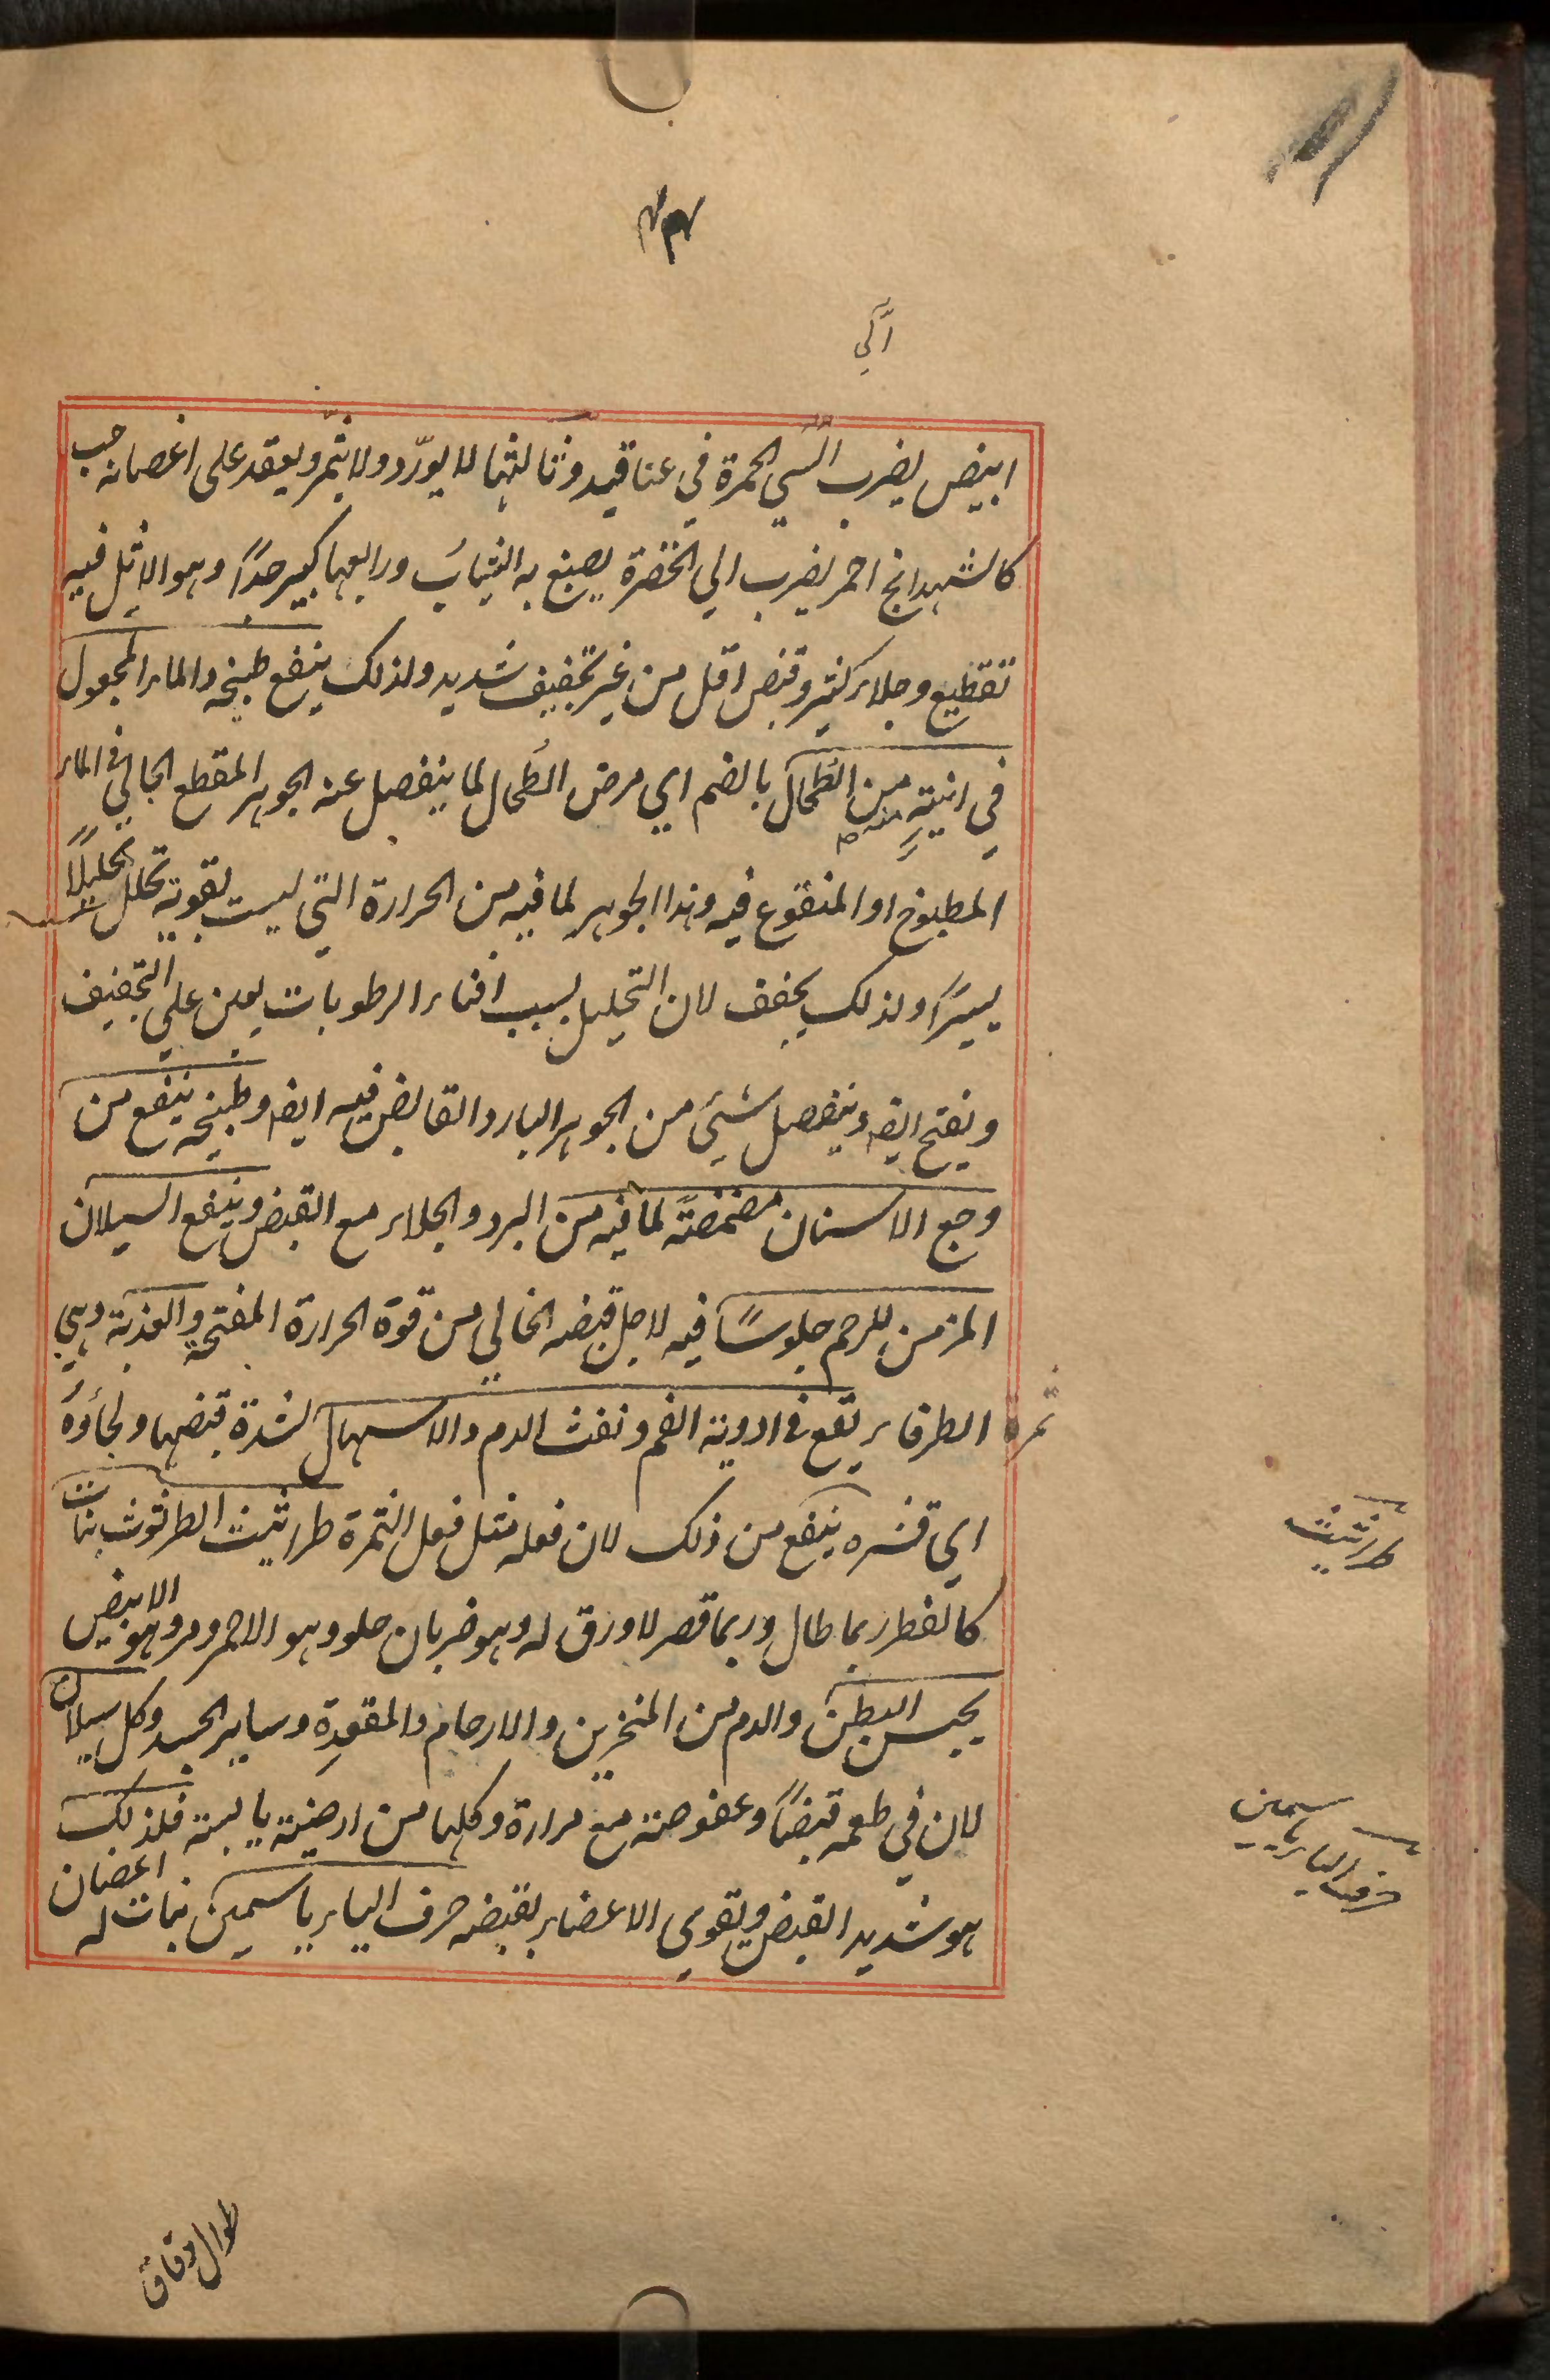 الي
ابيض يضرب الي الحمرة في عناقيد وثالثها لا يورّد ولا يثمر ويعقد على اغصانه حب
كالشهدانج احمر يضرب الي الخضرة يصبغ به الثياب ورابعها كبير جدًا وهو الاثل فيه
تقطيع وجلاء كثير وقبض اقل من غير تجفيف شديد ولذلك ينفع طبيخه والماء المجعول
في انيته من الطحال بالضم اي مرض الطُحال لما ينفصل عنه الجوهر المقطع الجالي في الماء
المطبوخ او المنقوع فيه وهذا الجوهر لما فيه من الحرارة التي ليست بقوية تحلل تحليلًا
يسيرًا ولذلك يجفف لان التحليل بسبب افناء الرطوبات يعين على التجفيف
ويفتح ايضا وينفصل شيء من الجوهر البارد القابض فيه ايضا وطبيخه ينفع من
وجع الاسنان مضمضةً لما فيه من البرد والجلاء مع القبض وينفع السيلان
المزمن للرحم جلوسًا فيه لاجل قبضه الخالي من قوة الحرارة المفتحة والعذبة وهي
ثمرة الطرفاء يقع في ادوية الفم ونفث الدم والاسهال لشدة قبضها ولحاؤه
اي قشره ينفع من ذلك لان فعله مثل فعل الثمرة طراثيث الطرثوث نبات
كالفطر ربما طال وربما قصر لا ورق له وهو ضربان حلو وهو الاحمر ومر وهو الابيض
يحبس البطن والدم من المنخرين والارحام والمقعدة وساير الجسد وكل سيلان
لان في طعمه قبضًا وعفوصة مع مرارة وكلها من ارضية يابسة فلذلك
هو شديد القبض ويقوي الاعضاء بقبضه حرف الياء ياسمين نبات له اغصان
طرثيث
حرف الياء ياسمين
طوال دقاق